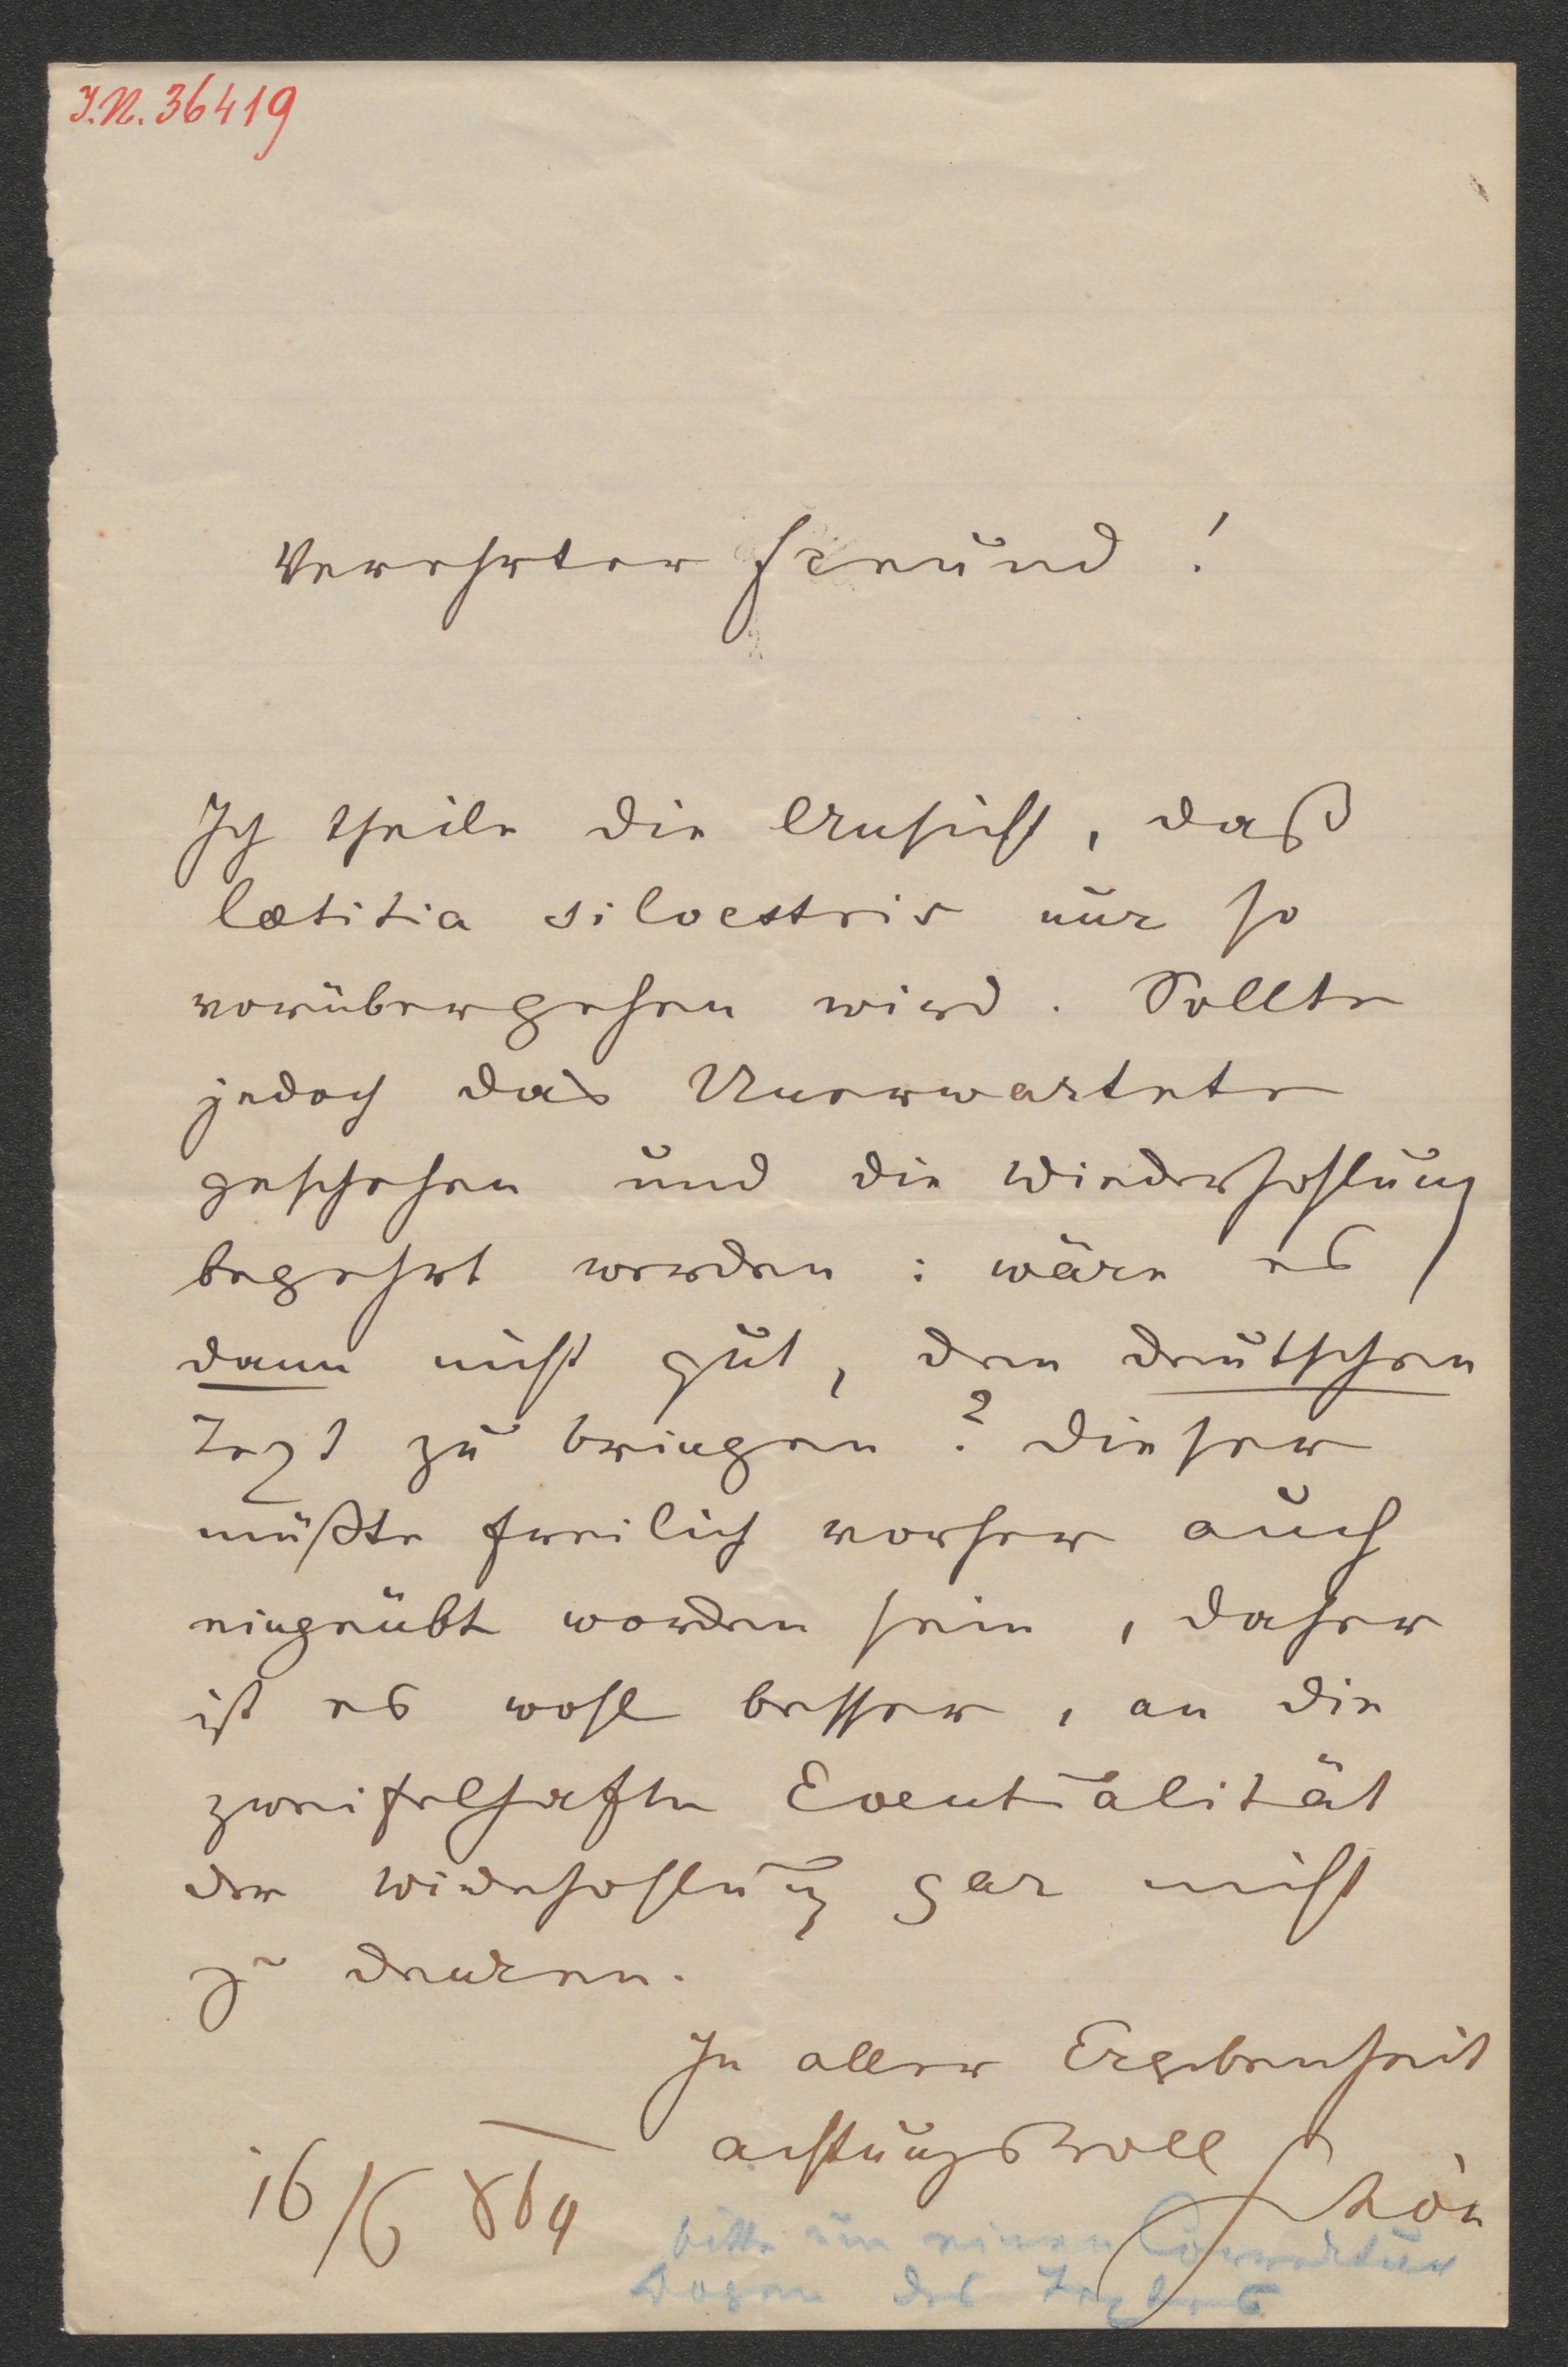 I.N. 36419
Verehrter Freund !
Ich theile die Ansicht, daß
lætitia silvestris nur so
vorübergehen wird. Sollte
jedoch das Unerwartete
geschehen und die Wiederhohlung
begehrt werden : wäre es
dann nicht gut, den deutschen
Text zu bringen ? Dieser
müßte freilich vorher auch
eingeübt worden sein, daher
ist es wohl besser, an die
zweifelhafte Eventualität
der Widerhohlung gar nicht
zu denken.
In aller Ergebenheit
achtungsvoll
16/6 869 Schön
bitte um einen Correctur
Bogen des Textes